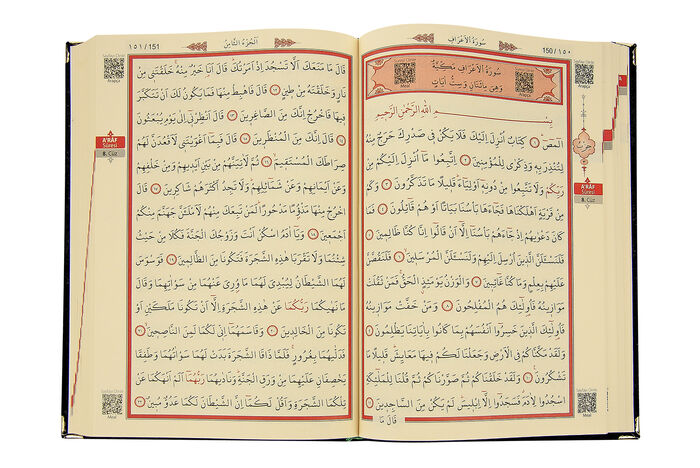 سُورَةُ الْاَعْرَافِ
150 / ١٥٠
سُورَةُ الْاَعْرَافِ مَكِّيَّةٌ
وَهِىَ مِائَتَانِ وَسِتُّ اٰيَاتٍ
Meal
Arapça
بِسْمِ اللّٰهِ الرَّحْمٰنِ الرَّحِيمِ
الٓمٓصٓ ﴿١﴾ كِتَابٌ اُنْزِلَ اِلَيْكَ فَلَا يَكُنْ فِى صَدْرِكَ حَرَجٌ مِنْهُ
لِتُنْذِرَ بِهٖ وَذِكْرٰى لِلْمُؤْمِنِينَ ﴿٢﴾ اِتَّبِعُوا مَٓا اُنْزِلَ اِلَيْكُمْ مِنْ
رَبِّكُمْ وَلَا تَتَّبِعُوا مِنْ دُونِهٖٓ اَوْلِيَٓاءَ قَلِيلًا مَا تَذَكَّرُونَ ﴿٣﴾ وَكَمْ
مِنْ قَرْيَةٍ اَهْلَكْنَاهَا فَجَٓاءَهَا بَأْسُنَا بَيَاتًا اَوْ هُمْ قَٓائِلُونَ ﴿٤﴾ فَمَا
كَانَ دَعْوٰيهُمْ اِذْ جَٓاءَهُمْ بَأْسُنَٓا اِلَّٓا اَنْ قَالُٓوا اِنَّا كُنَّا ظَالِمِينَ ﴿٥﴾
فَلَنَسْـَٔلَنَّ الَّذِينَ اُرْسِلَ اِلَيْهِمْ وَلَنَسْـَٔلَنَّ الْمُرْسَلِينَ ﴿٦﴾ فَلَنَقُصَّنَّ
عَلَيْهِمْ بِعِلْمٍ وَمَا كُنَّا غَٓائِبِينَ ﴿٧﴾ وَالْوَزْنُ يَوْمَئِذٍ الْحَقُّ فَمَنْ ثَقُلَتْ
مَوَازِينُهُ فَاُولٰٓئِكَ هُمُ الْمُفْلِحُونَ ﴿٨﴾ وَمَنْ خَفَّتْ مَوَازِينُهُ
فَاُولٰٓئِكَ الَّذِينَ خَسِرُٓوا اَنْفُسَهُمْ بِمَا كَانُوا بِاٰيَاتِنَا يَظْلِمُونَ ﴿٩﴾
وَلَقَدْ مَكَّنَّاكُمْ فِى الْاَرْضِ وَجَعَلْنَا لَكُمْ فِيهَا مَعَايِشَ قَلِيلًا مَا
تَشْكُرُونَ ﴿١٠﴾ وَلَقَدْ خَلَقْنَاكُمْ ثُمَّ صَوَّرْنَاكُمْ ثُمَّ قُلْنَا لِلْمَلٰٓئِكَةِ
اسْجُدُوا لِاٰدَمَ فَسَجَدُٓوا اِلَّٓا اِبْلِيسَ لَمْ يَكُنْ مِنَ السَّاجِدِينَ ﴿١١﴾
قَالَ مَا
حزب
A'RÂF
Sûresi
8. Cüz
Arapça
Meal
١٥١ / 151
اَلْجُزْءُ الثَّامِنُ
قَالَ مَا مَنَعَكَ اَلَّا تَسْجُدَ اِذْ اَمَرْتُكَ قَالَ اَنَا خَيْرٌ مِنْهُ خَلَقْتَنِى مِنْ
نَارٍ وَخَلَقْتَهُ مِنْ طِينٍ ﴿١٢﴾ قَالَ فَاهْبِطْ مِنْهَا فَمَا يَكُونُ لَكَ اَنْ تَتَكَبَّرَ
فِيهَا فَاخْرُجْ اِنَّكَ مِنَ الصَّاغِرِينَ ﴿١٣﴾ قَالَ اَنْظِرْنِٓى اِلٰى يَوْمِ يُبْعَثُونَ
﴿١٤﴾ قَالَ اِنَّكَ مِنَ الْمُنْظَرِينَ ﴿١٥﴾ قَالَ فَبِمَٓا اَغْوَيْتَنِى لَاَقْعُدَنَّ لَهُمْ
صِرَاطَكَ الْمُسْتَقِيمَ ﴿١٦﴾ ثُمَّ لَاٰتِيَنَّهُمْ مِنْ بَيْنِ اَيْدِيهِمْ وَمِنْ خَلْفِهِمْ
وَعَنْ اَيْمَانِهِمْ وَعَنْ شَمَٓائِلِهِمْ وَلَا تَجِدُ اَكْثَرَهُمْ شَاكِرِينَ ﴿١٧﴾ قَالَ
اخْرُجْ مِنْهَا مَذْؤُمًا مَدْحُورًا لَمَنْ تَبِعَكَ مِنْهُمْ لَاَمْلَـَٔنَّ جَهَنَّمَ مِنْكُمْ
اَجْمَعِينَ ﴿١٨﴾ وَيَٓا اٰدَمُ اسْكُنْ اَنْتَ وَزَوْجُكَ الْجَنَّةَ فَكُلَا مِنْ حَيْثُ
شِئْتُمَا وَلَا تَقْرَبَا هٰذِهِ الشَّجَرَةَ فَتَكُونَا مِنَ الظَّالِمِينَ ﴿١٩﴾ فَوَسْوَسَ
لَهُمَا الشَّيْطَانُ لِيُبْدِىَ لَهُمَا مَا وُرِىَ عَنْهُمَا مِنْ سَوْاٰتِهِمَا وَقَالَ
مَا نَهٰيكُمَا رَبُّكُمَا عَنْ هٰذِهِ الشَّجَرَةِ اِلَّٓا اَنْ تَكُونَا مَلَكَيْنِ اَوْ
تَكُونَا مِنَ الْخَالِدِينَ ﴿٢٠﴾ وَقَاسَمَهُمَٓا اِنِّى لَكُمَا لَمِنَ النَّاصِحِينَ ﴿٢١﴾
فَدَلّٰيهُمَا بِغُرُورٍ فَلَمَّا ذَاقَا الشَّجَرَةَ بَدَتْ لَهُمَا سَوْاٰتُهُمَا وَطَفِقَا
يَخْصِفَانِ عَلَيْهِمَا مِنْ وَرَقِ الْجَنَّةِ وَنَادٰيهُمَا رَبُّهُمَٓا اَلَمْ اَنْهَكُمَا عَنْ
تِلْكُمَا الشَّجَرَةِ وَاَقُلْ لَكُمَٓا اِنَّ الشَّيْطَانَ لَكُمَا عَدُوٌّ مُبِينٌ ﴿٢٢﴾
Arapça
A'RÂF
Sûresi
8. Cüz
Meal